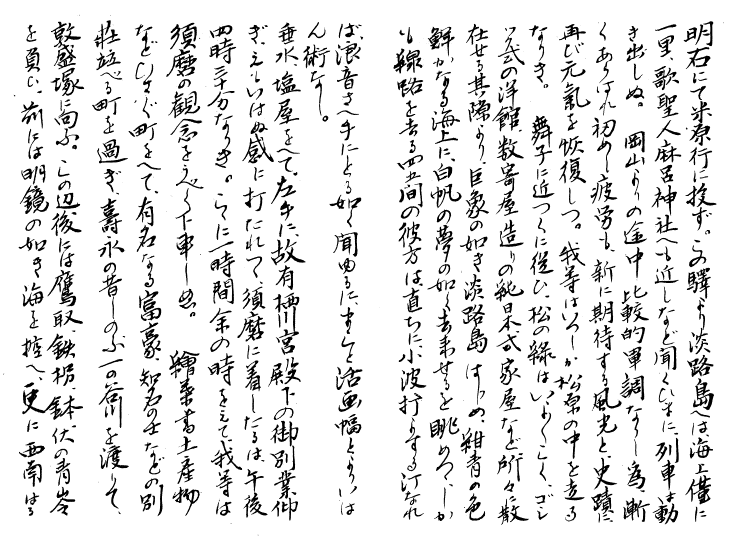 明石にて米原行に投ず。この驛より淡路島へは海上僅に
一里、歌聖人麻呂神社へも近しなど聞くひまに、列車は動
き出しぬ。岡山よりの途中比較的單調なりし為漸
くあらはれ初めし疲勞も、新に期待する風光と、史蹟に
再び元氣を恢復しつ。我等はいつしか松原の中を走る
なりき。舞子に近つくに從ひ、松の緑はいよ〳〵こく、ゴシ
ツク式の洋館、数寄屋造りの純日本式家屋など所々に散
在せる其隙より、巨象の如き淡路島はじめ、紺青の色
鮮かなる海上に、白帆の夢の如く去来せるを眺めつゝ、しか
も線路を去る四五間の彼方は直ちに、小波打よする汀なれ
ば、浪音さへ手にとる如く聞ゆるに、まこと活画幅とよりいは
ん術なし。
垂水塩屋をへて、左手に、故有栖川宮殿下の御別業仰
ぎ、えもいはぬ感に打たれつゝ須磨に着したるは午後
四時三十分なりき。こゝに一時間余の時をえて、我等は
須磨の觀念をうべく下車し出。繪葉書土産物
などひさぐ町をへて、有名なる富豪、知名の士などの別
莊並べる町を過ぎ、壽永の昔しのぶ一の谷川を渡りて、
敦盛塚に向ふ。この辺後には鷹取鉄拐、鉢伏の青岑
を負ひ、前には明鏡の如き海を控へ、更に西南はる